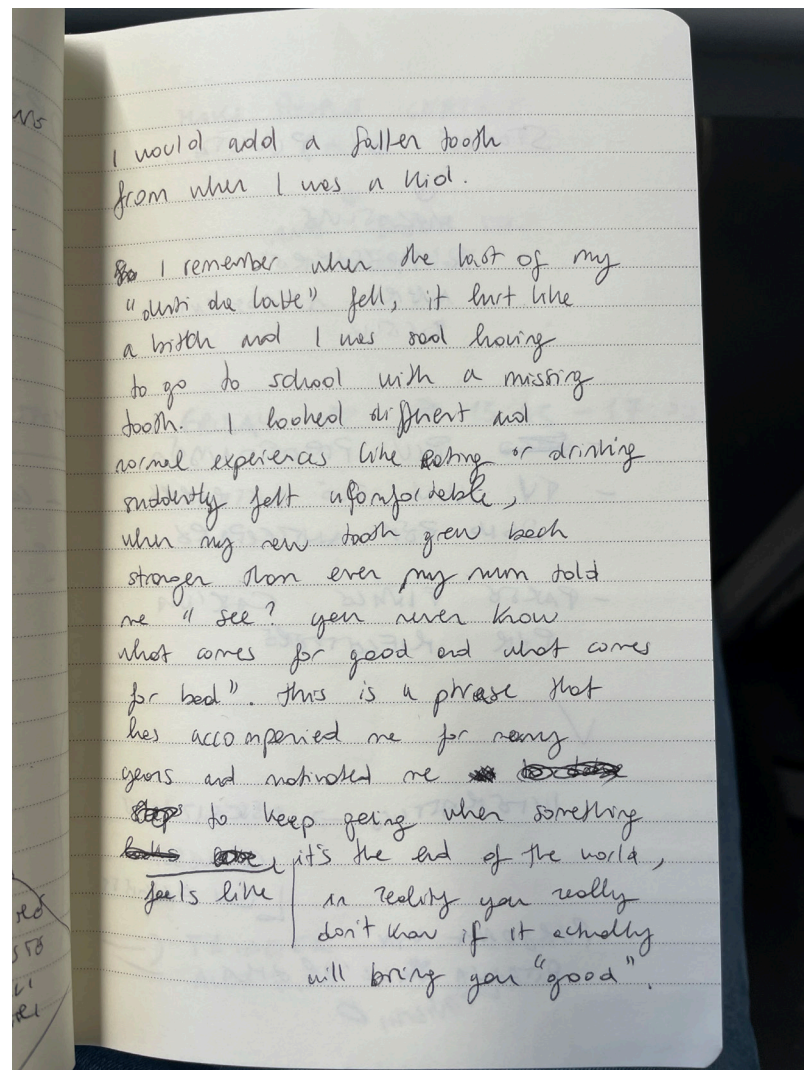 I would add a fallen tooth
from when I was a kid.
I remember when the last of my
"denti da latte" fell, it hurt like
a bitch and I was sad having
to go to school with a missing
tooth. I looked different and
normal experiences like eating or drinking
suddently felt unfomfortable,
when my new tooth grew back
stronger than ever my mum told
me "see? you never know
what comes for good and what comes
for bad". this is a phrase that
has accompanied me for many
years and motivated me
to keep going when something
feels like it's the end of the world,
in reality you really
don't know if it actually
will bring you "good".